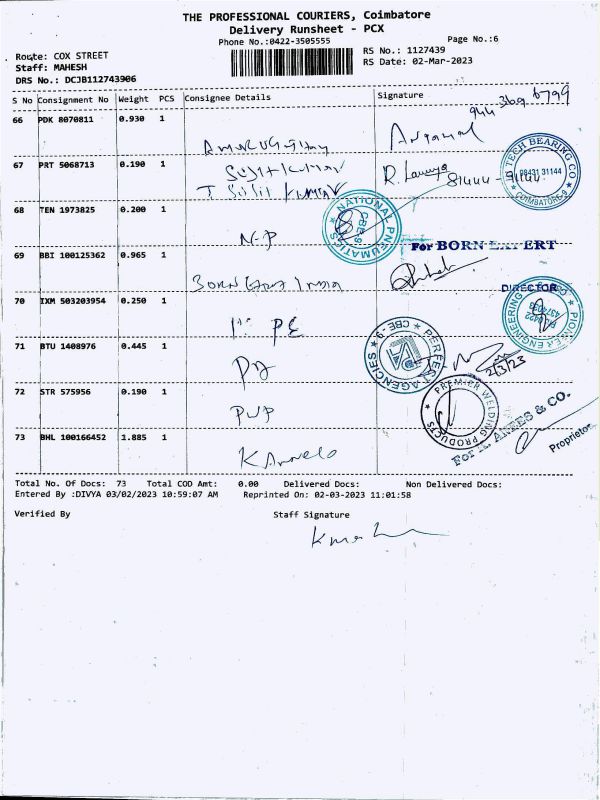 THE PROFESSIONAL COURIERS, Coimbatore
Delivery Runsheet - PCX
Phone No.:0422-3505555
Page No.:6
Route: COX STREET
RS No.: 1127439
Staff: MAHESH
RS Date: 02-Mar-2023
DRS No.: DCJB112743906
S No Consignment No Weight PCS Consignee Details Signature
944
66 PDK 8070811 0.930 1
67 PRT 5068713 0.190 1
Susit Kumar
R. Lavanya 81444
TECH BEARING CO
98431 31144
COIMBATORE-9
68 TEN 1973825 0.200 1
N-P
NATIONAL PNEUMATICS
CBE-9
For BORN EXPERT
69 BBI 100125362 0.965 1
Born India
DIRECTOR
70 IXM 503203954 0.250 1
PE
PIONEER ENGINEERING
71 BTU 1408976 0.445 1
PERFECT AGENCIES
CBE-9
PA
2/3/23
72 STR 575956 0.190 1
PWP
PREMIER WELDING PRODUCTS
& CO.
Proprietor
73 BHL 100166452 1.885 1
Total No. Of Docs: 73 Total COD Amt: 0.00 Delivered Docs: Non Delivered Docs:
Entered By :DIVYA 03/02/2023 10:59:07 AM Reprinted On: 02-03-2023 11:01:58
Verified By Staff Signature